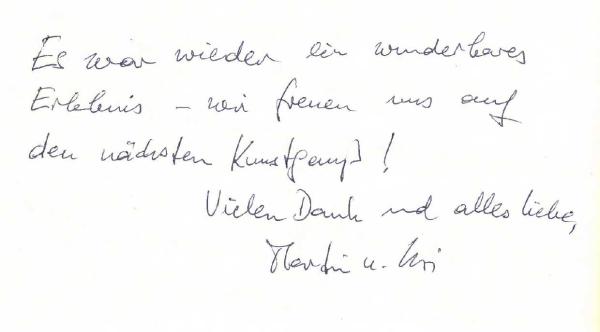 Es war wieder ein wunderbares
Erlebnis – wir freuen uns auf
den nächsten !
Vielen Dank und alles liebe,
Martin u.